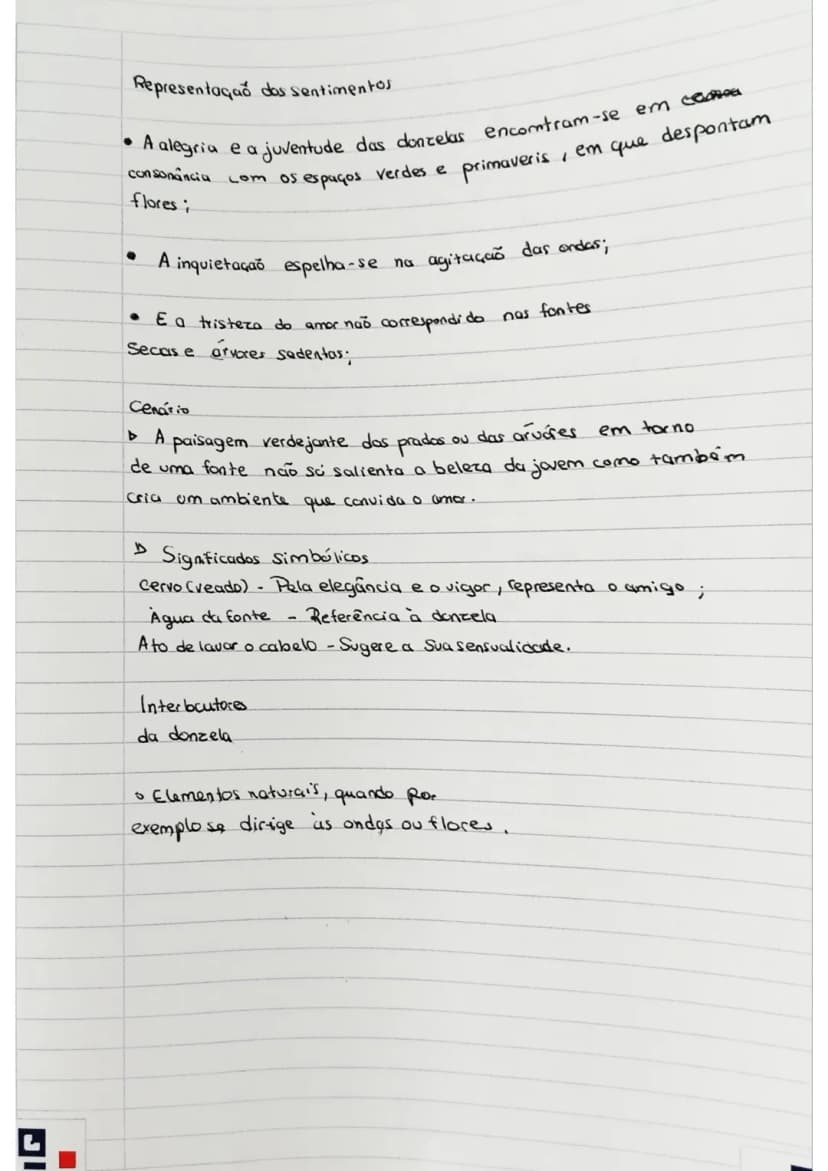 Representação dos sentimentos
• A alegria e a juventude das donzelas encomtram-se em
consonância com os espaços verdes e primaveris, em que despontam
flores;
• A inquietação espelha-se na agitação das ondas;
• E a tristeza do amor não correspondido nas fontes
Secas e árvores sedentas;
Cenário
▷ A paisagem verdejante dos prados ou das árvores em torno
de uma fonte não só salienta a beleza da jovem como também
cria um ambiente que convida o amor.
▷ Significados simbólicos
Cervo (veado) - Pela elegância e o vigor, representa o amigo;
Água da fonte - Referência à donzela
Ato de lavar o cabelo - Sugere a sua sensualidade.
Interlocutores
da donzela
◦ Elementos naturais, quando por
exemplo se dirige às ondas ou flores.